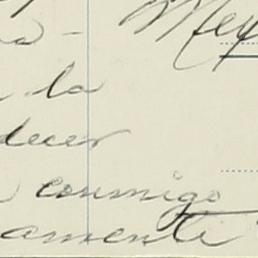 Mey
la
decer
conmigo
amente